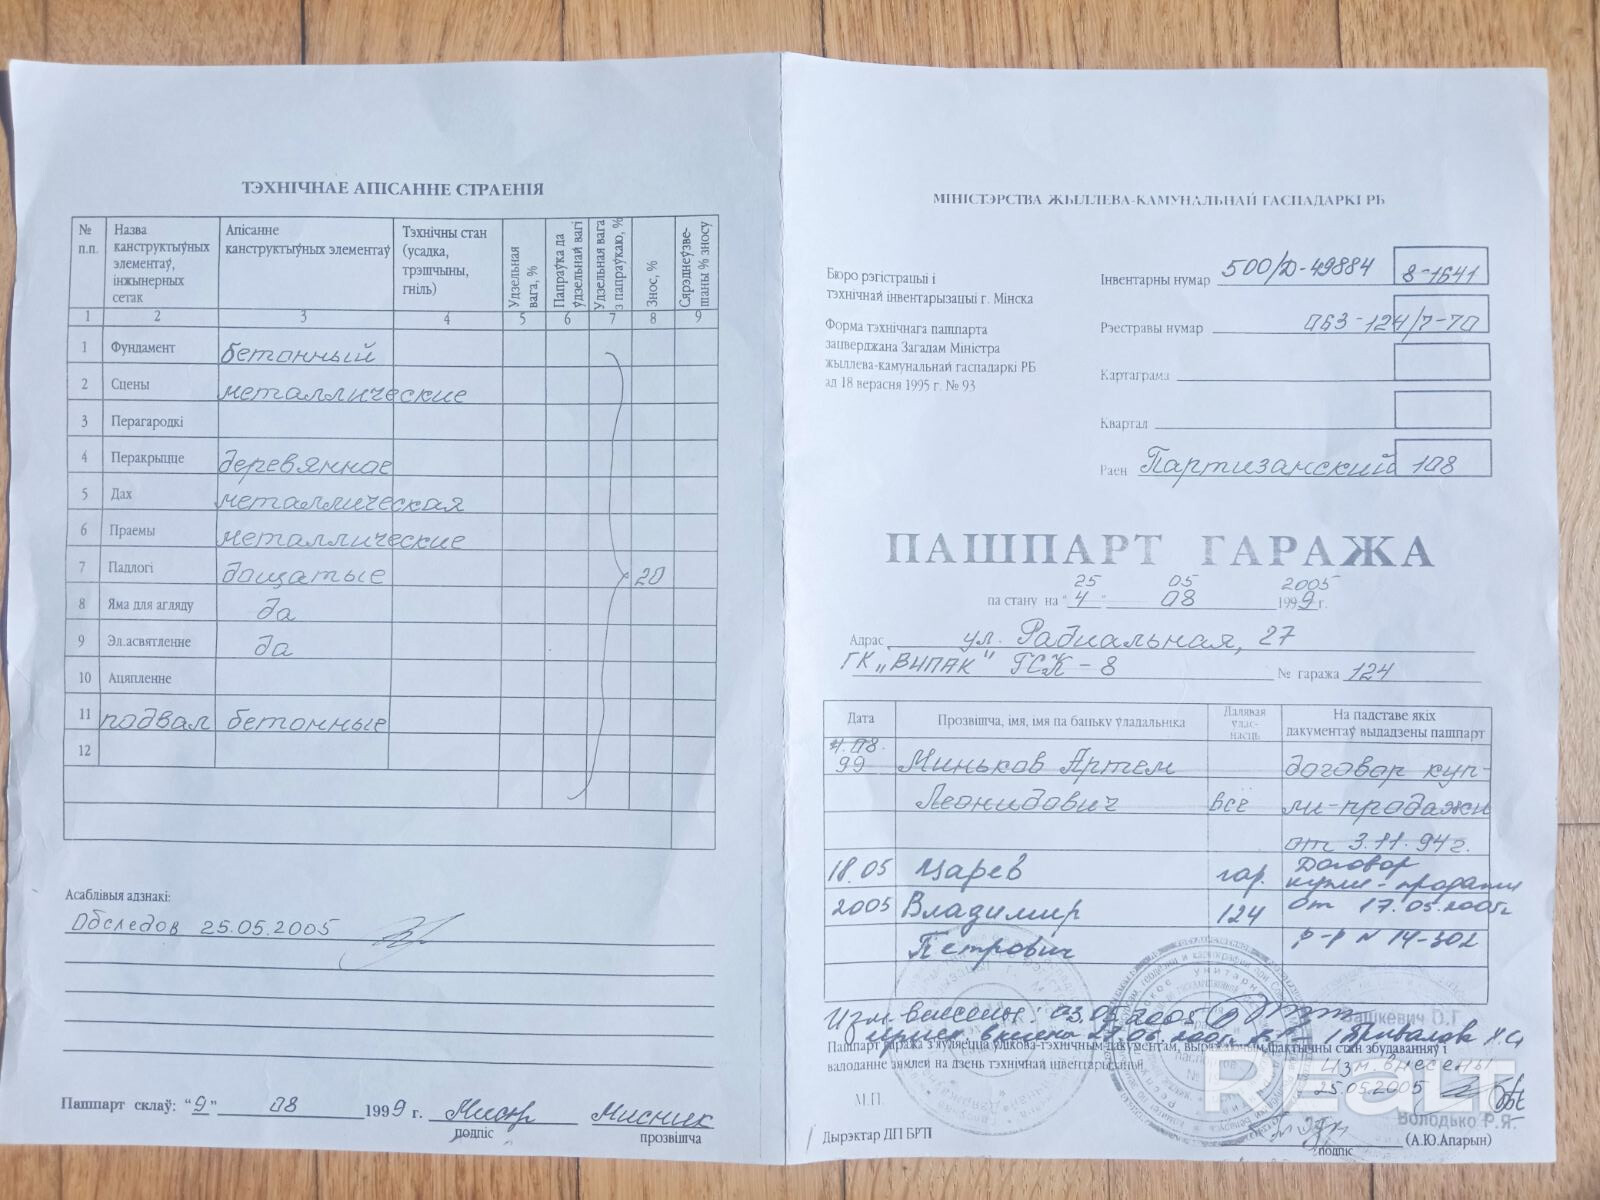 ТЭХНІЧНАЕ АПІСАННЕ СТРАЕНІЯ
№ п.п.
Назва канструктыўных элементаў, інжынерных сетак
Апісанне канструктыўных элементаў
Тэхнічны стан (усадка, трэшчыны, гніль)
Удзельная вага, %
Папраўка да ўдзельнай вагі
Удзельная вага з папраўкаю, %
Знос, %
Сярэднеўзве-шаны % зносу
1 2 3 4 5 6 7 8 9
1 Фундамент бетонный
2 Сцены металлические
3 Перагародкі
4 Перакрыцце деревянное
5 Дах металлическая
6 Праемы металлические
7 Падлогі дощатые 20
8 Яма для агляду да
9 Эл.асвятленне да
10 Ацяпленне
11 подвал бетонные
12
Асаблівыя адзнакі:
Обследов 25.05.2005
Пашпарт склаў: "9" 08 1999 г. Мисник
подпіс прозвішча
МІНІСТЭРСТВА ЖЫЛЛЕВА-КАМУНАЛЬНАЙ ГАСПАДАРКІ РБ
Бюро рэгістрацыі і
тэхнічнай інвентарызацыі г. Мінска
Форма тэхнічнага пашпарта
зацверджана Загадам Міністра
жыллева-камунальнай гаспадаркі РБ
ад 18 верасня 1995 г. № 93
Інвентарны нумар 500/Д-49884 8-1641
Рэестравы нумар 063-124/7-70
Картаграма
Квартал
Раен Партизанский 108
ПАШПАРТ ГАРАЖА
25 05 2005
па стану на "4" 08 1999 г.
Адрас ул. Радиальная, 27
ГК „ВИПАК" ГСК-8 № гаража 124
Дата
Прозвішча, імя, імя па бацьку ўладальніка
Далявая ўлас-насць
На падставе якіх дакументаў выдадзены пашпарт
4.08.
99 Миньков Артем договор куп-
Леонидович все ли-продажи
от 3.11.94г.
18.05 Царев гар. Договор
купли-продажи
2005 Владимир 124 от 17.05.2005г
Петрович р-р N 14-302
Изм. внесены: 03.05.2005
Пашпарт гаража з'яўляецца ўлікова-тэхнічным дакументам, выражальным фактычны стан збудаванняў і
валоданне зямлей на дзень тэхнічнай інвентарызацыі
Изм. внесены
25.05.2005
М.П.
REALT
Володько Р.Я.
Дырэктар ДП БРТІ
подпіс
(А.Ю.Апарын)